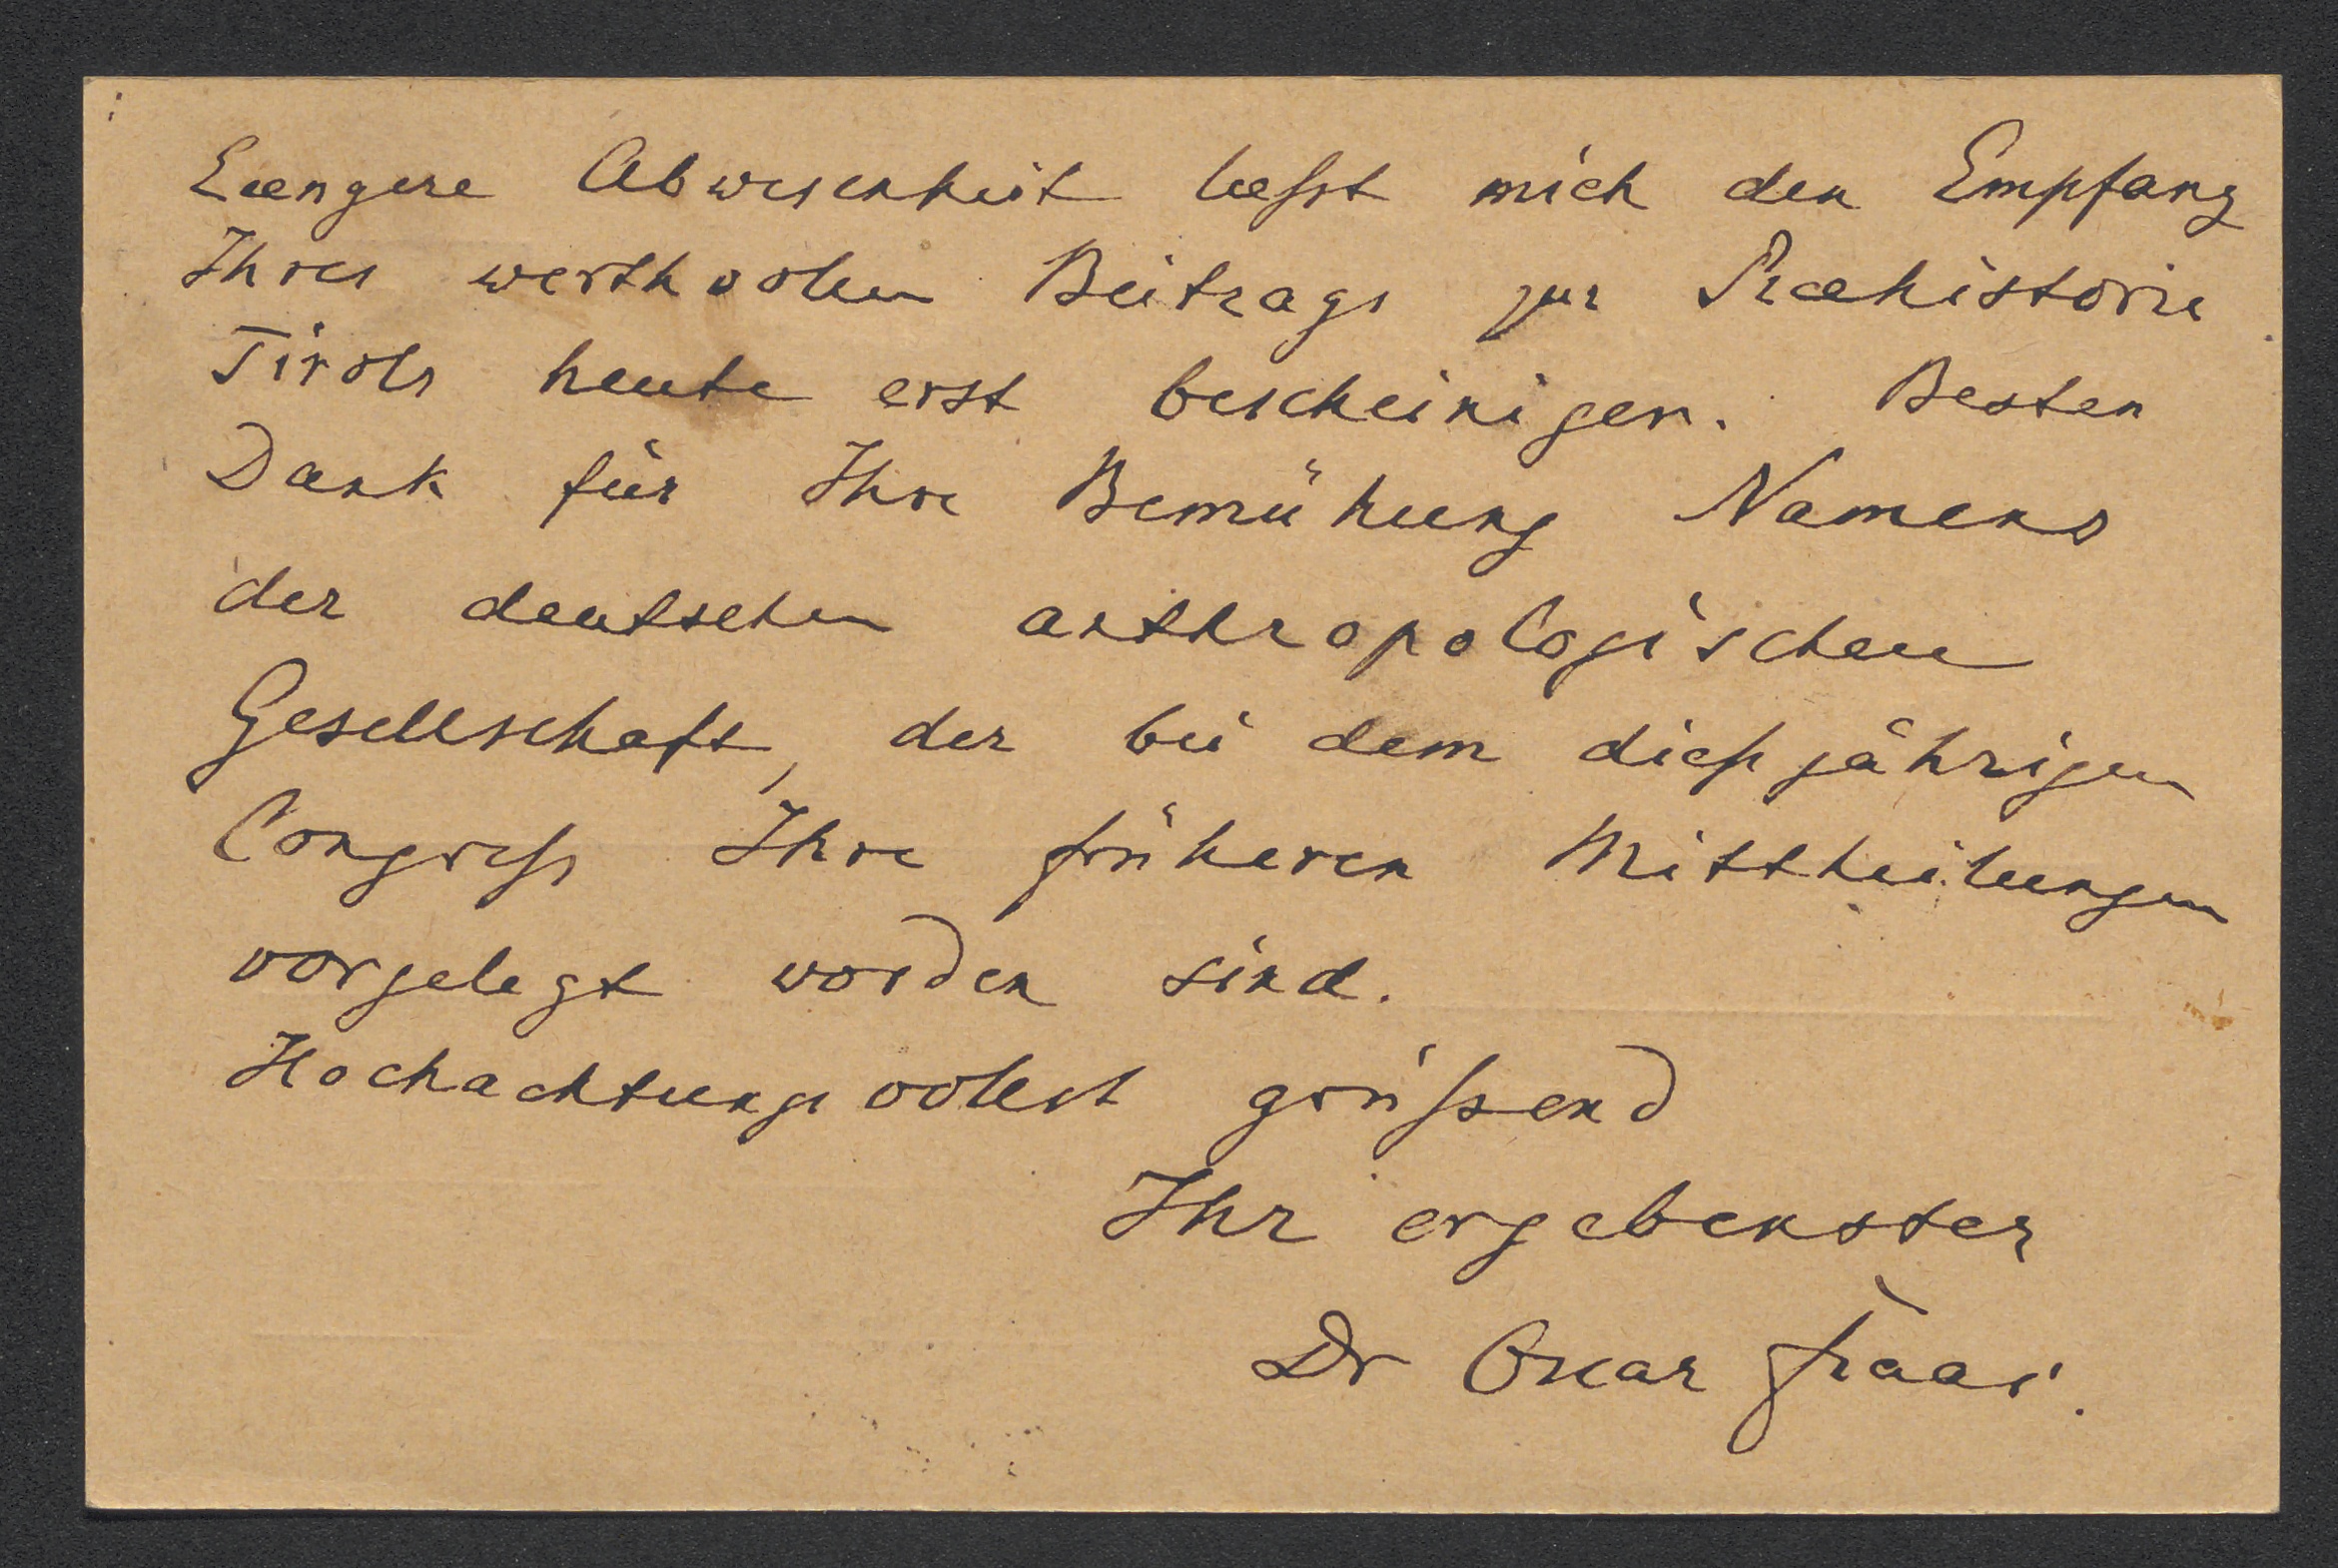 Laengere Abwesenheit laesst mich den Empfang
Ihres werthvollen Beitrags zur Praehistorie
Tirols heute erst bescheinigen. Besten
Dank für Ihre Bemühung Namens
der deutschen anthropologischen
Gesellschaft, der bei dem dießjährigen
Congress Ihre früheren Mittheilungen
vorgelegt worden sind.
Hochachtungsvollst grüßend
Ihr ergebenster
Dr Oscar Fraas.